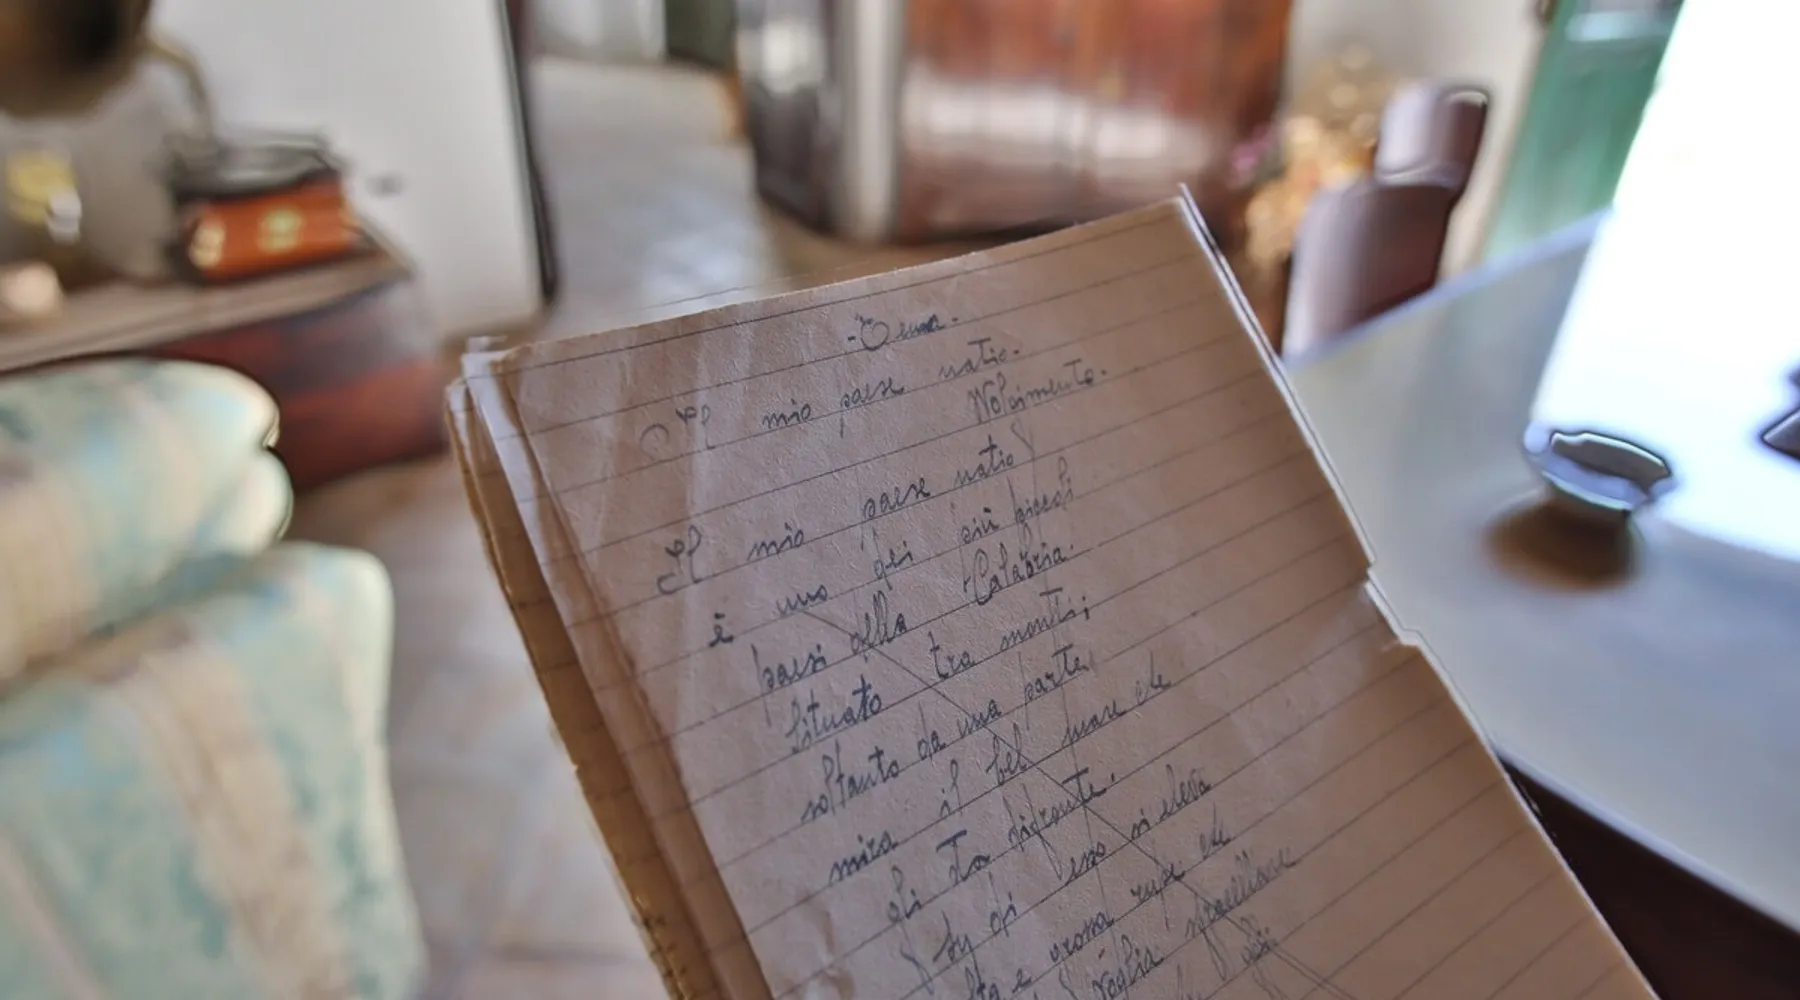 - Tema. -
Il mio paese natio.
Svolgimento.
Il mio paese natio
è uno dei più piccoli
paesi della Calabria.
situato tra monti;
soltanto da una parte
mira il bel mare che
gli sta difronte.
Su di esso si eleva
e grossa rupe che
voglia